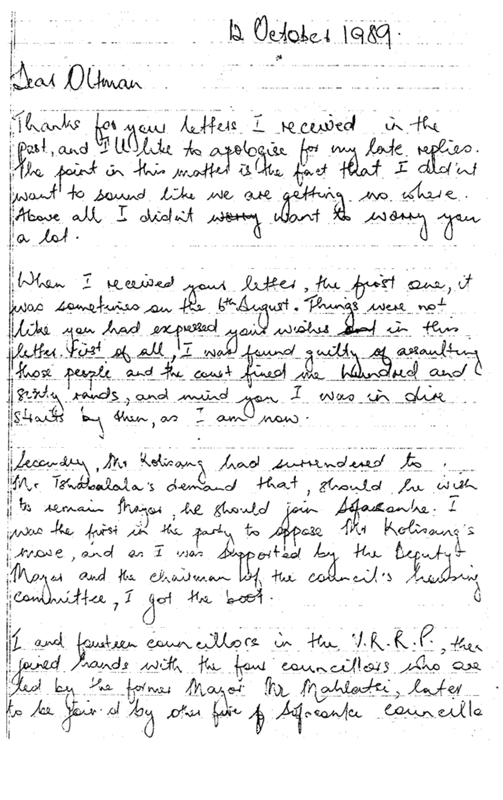 12 October 1989.
Dear Oltman
Thanks for your letters I received in the
past, and I'll like to apologise for my late replies.
The point in this matter is the fact that I did'nt
want to sound like we are getting no where.
Above all I did'nt worry want to worry you
a lot.
When I received your letter, the first one, it
was sometimes on the 6th August. Things were not
like you had expressed your wishes in this
letter. First of all, I was found guilty of assaulting
those people and the court fined me hundred and
sixty rands, and mind you I was in dire
straits by then, as I am now.
Secondly, Mr Kolisang had surrendered to
Mr. Tshabalala's demand that, should he wish
to remain Mayor, he should join Sofasonke. I
was the first in the party to oppose Mr Kolisang's
move, and as I was supported by the Deputy
Mayor and the chairman of the council's housing
committee, I got the boot.
I and fourteen councillors in the V.R.R.P., then
joined hands with the four councillors who are
led by the former Mayor Mr Mahlatsi, later
to be join'd by other five Sofasonke councillo